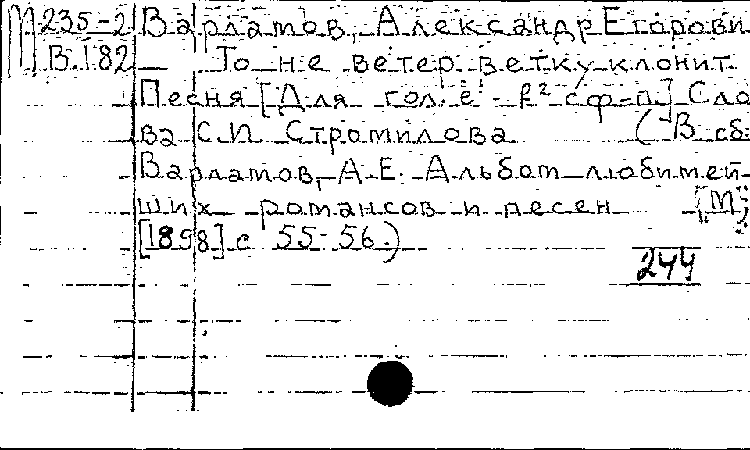 М 235-2 Варламов, Александр Егорови
В.182 — То не ветер ветку клонит.
Песня [Для гол. e¹-f² с ф-п.] Сло
ва С.И Стромилова (В сб.
Варламов, А.Е. Альбом любимей
ших романсов и песен [М.,
[1898] с 55-56.)
244